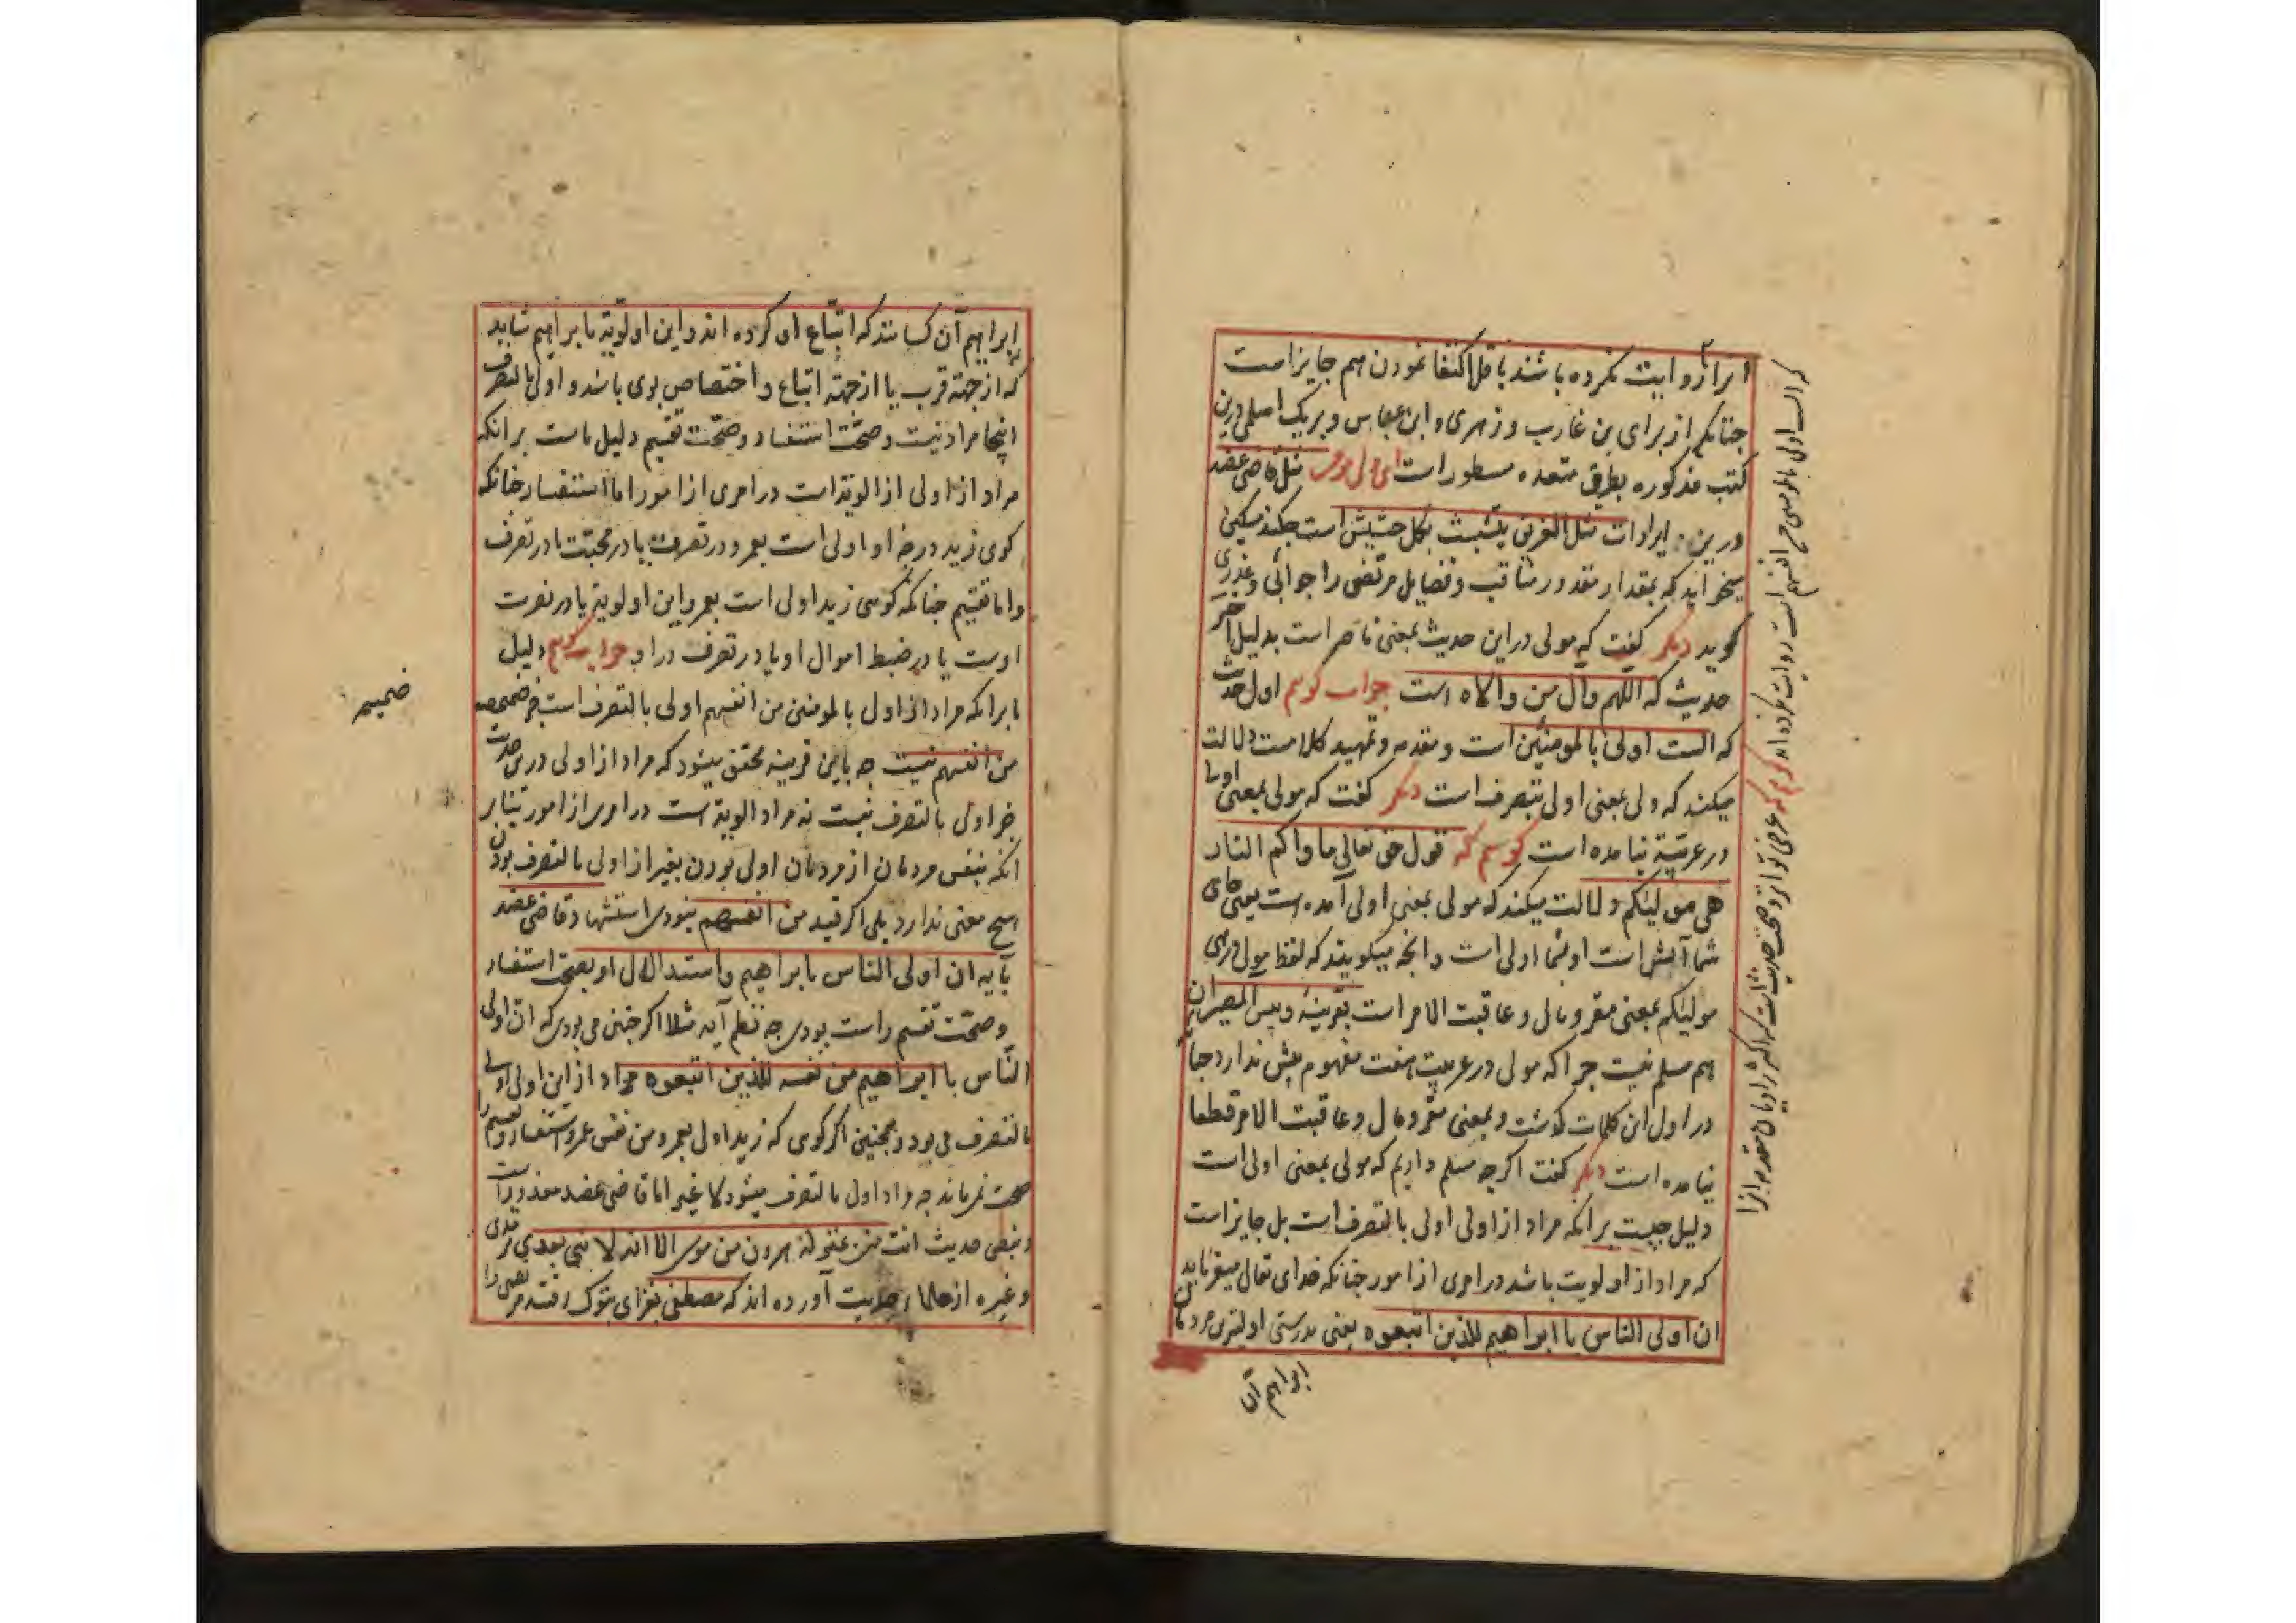 انرا روایت نکرده باشند باقل اکتفا نمودن هم جایز است
چنانکه از برای بن عازب و زهری و ابن عباس و بریک اسلمی درین
کتب مذکوره بطرق متعده مسطور است مثل قاضی عضد
درین ایرادات مثل الغریق یتشبث بکل حشیش است چکند مسکین
میخواهد که بمقدار مقدور مناقب و فضایل مرتضی را جوابی و عذری
کوید دیکر کفت که مولی دراین حدیث بمعنی ناصر است بدلیل آخر
حدیث که اللهم وال من والاه است جواب کویم اول حدیث
که الست اولی بالمومنین است و مقدمه و تمهید کلامست دلالت
میکند که ولی بمعنی اولی بتصرف است دیکر کفت که مولی بمعنی اولی
در عربیّة نیامده است کویم که قول حق تعالی ماواکم النار
هی مولیکم دلالت میکند که مولی بمعنی اولی آمده است یعنی جای
شما آتش است او بشما اولی است و آنچه میکویند که لفظ مولی درین
مولیکم بمعنی مقر و مال و عاقبت الامر است بقرینهٔ و بیس المصیر آن
هم مسلم نیست چرا که مولی در عربیت هفت مفهوم بیش ندارد چنانچه
در اول این کلمات کذشت و بمعنی مقر و مال و عاقبت الامر قطعا
نیامده است دیکر کفت اکرچه مسلم داریم که مولی بمعنی اولی است
دلیل چیست برانکه مراد از اولی اولی بالتصرف است بل جایز است
که مراد از اولویت باشد در امری از امور چنانکه خدای تعالی میفرماید
ان اولی الناس با ابراهیم للذین اتبعوه یعنی بدرستی اولیترین مردمان
ابراهیم آن
که الست اولی بالمومنین من انفسهم است روایت نکرده اند کویم که عرض تواتر و صحت حدیث است که اکثر راویان مقدمه انرا
بابراهیم آن کسانند که اتباع او کرده اند و این اولویة بابراهیم شاید
که از جهة قرب یا از جهة اتباع و اختصاص بوی باشد و اولی بالتصرف
اینجا مراد نیست و صحّت استفسار و صحّت تقسیم دلیل ماست برانکه
مراد از اولی از الویة است در امری از امور اما استفسار چنانکه
کوی زید درچه او اولی است بعمرو در نصرت یا در محبّت یا در تصرف
و اما تقسیم چنانکه کوی زید اولی است بعمرو این اولویة یا در نصرت
اوست یا در ضبط اموال او یا در تصرف در او جواب کویم دلیل
ما برانکه مراد از اول بالمومنین من انفسهم اولی بالتصرف است جز ضمیمه
من انفسهم نیست چه باین قرینه محقق میشود که مراد از اولی درین حدیث
جز اولی بالتصرف نیست نه مراد الویة است در امری از امور بنابر
انکه بنفس مردمان از مردمان اولی بودن بغیر از اولی بالتصرف بودن
هیچ معنی ندارد بلی اکر قید من انفسهم نبودی استشهاد قاضی عضد
بآیه ان اولی الناس بابراهیم و استدلال او بصحت استفسار
و صحّت تقسیم راست بودی چه نظم آیه مثلا اکر چنین می بودی که ان اولی
النّاس با ابراهیم من نفسه للذین اتبعوه مراد از این اولی اولی
بالتصرف می بود و همچنین اکر کوی که زید اولی بعمرو من نفس عمرو استفسار و تقسیم را
صحت نمی ماند چه مراد اولی بالتصرف میشود لا غیر اما قاضی عضد معذور است
و نص حدیث انت منی بمنزلة هرون من موسی الا انه لا نبی بعدی ترمذی
و غیره از علماء حدیث آورده اند که مصطفی بغزای تبوک رفت مرتضی را
ضمیمه